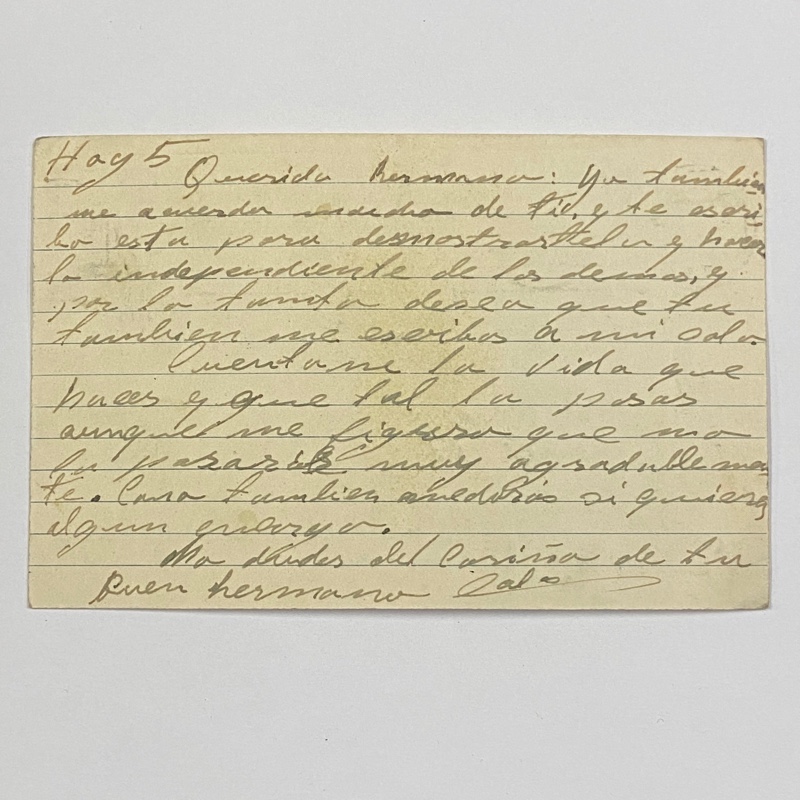 Hoy 5
Querido hermano: Yo también
me acuerdo mucho de tí, y te escri-
bo esta para demostrartelo y hacer
lo independiente de los demas, y
por lo tanto deseo que tu
tambien me escribas a mi solo.
Cuentame la vida que
haces y que tal lo pasas
aunque me figuro que no
lo pasaras muy agradableme-
te. Como tambien si quieres
algun encargo.
No dudes del Cariño de tu
buen hermano